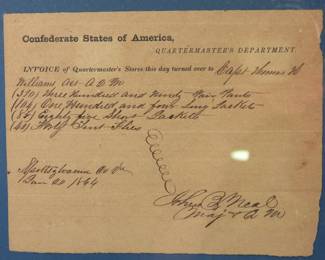 Confederate States of America,
QUARTERMASTER'S DEPARTMENT.
INVOICE of Quartermaster's Stores this day turned over to Capt Thomas H
Williams Ass A Q M
Three Hundred and Ninety Pair Pants
(104) One Hundred and four Long Jackets
(85) Eighty five Short Jackets
Co Va
Jan 20 1864
John Neal
Maj & Q M